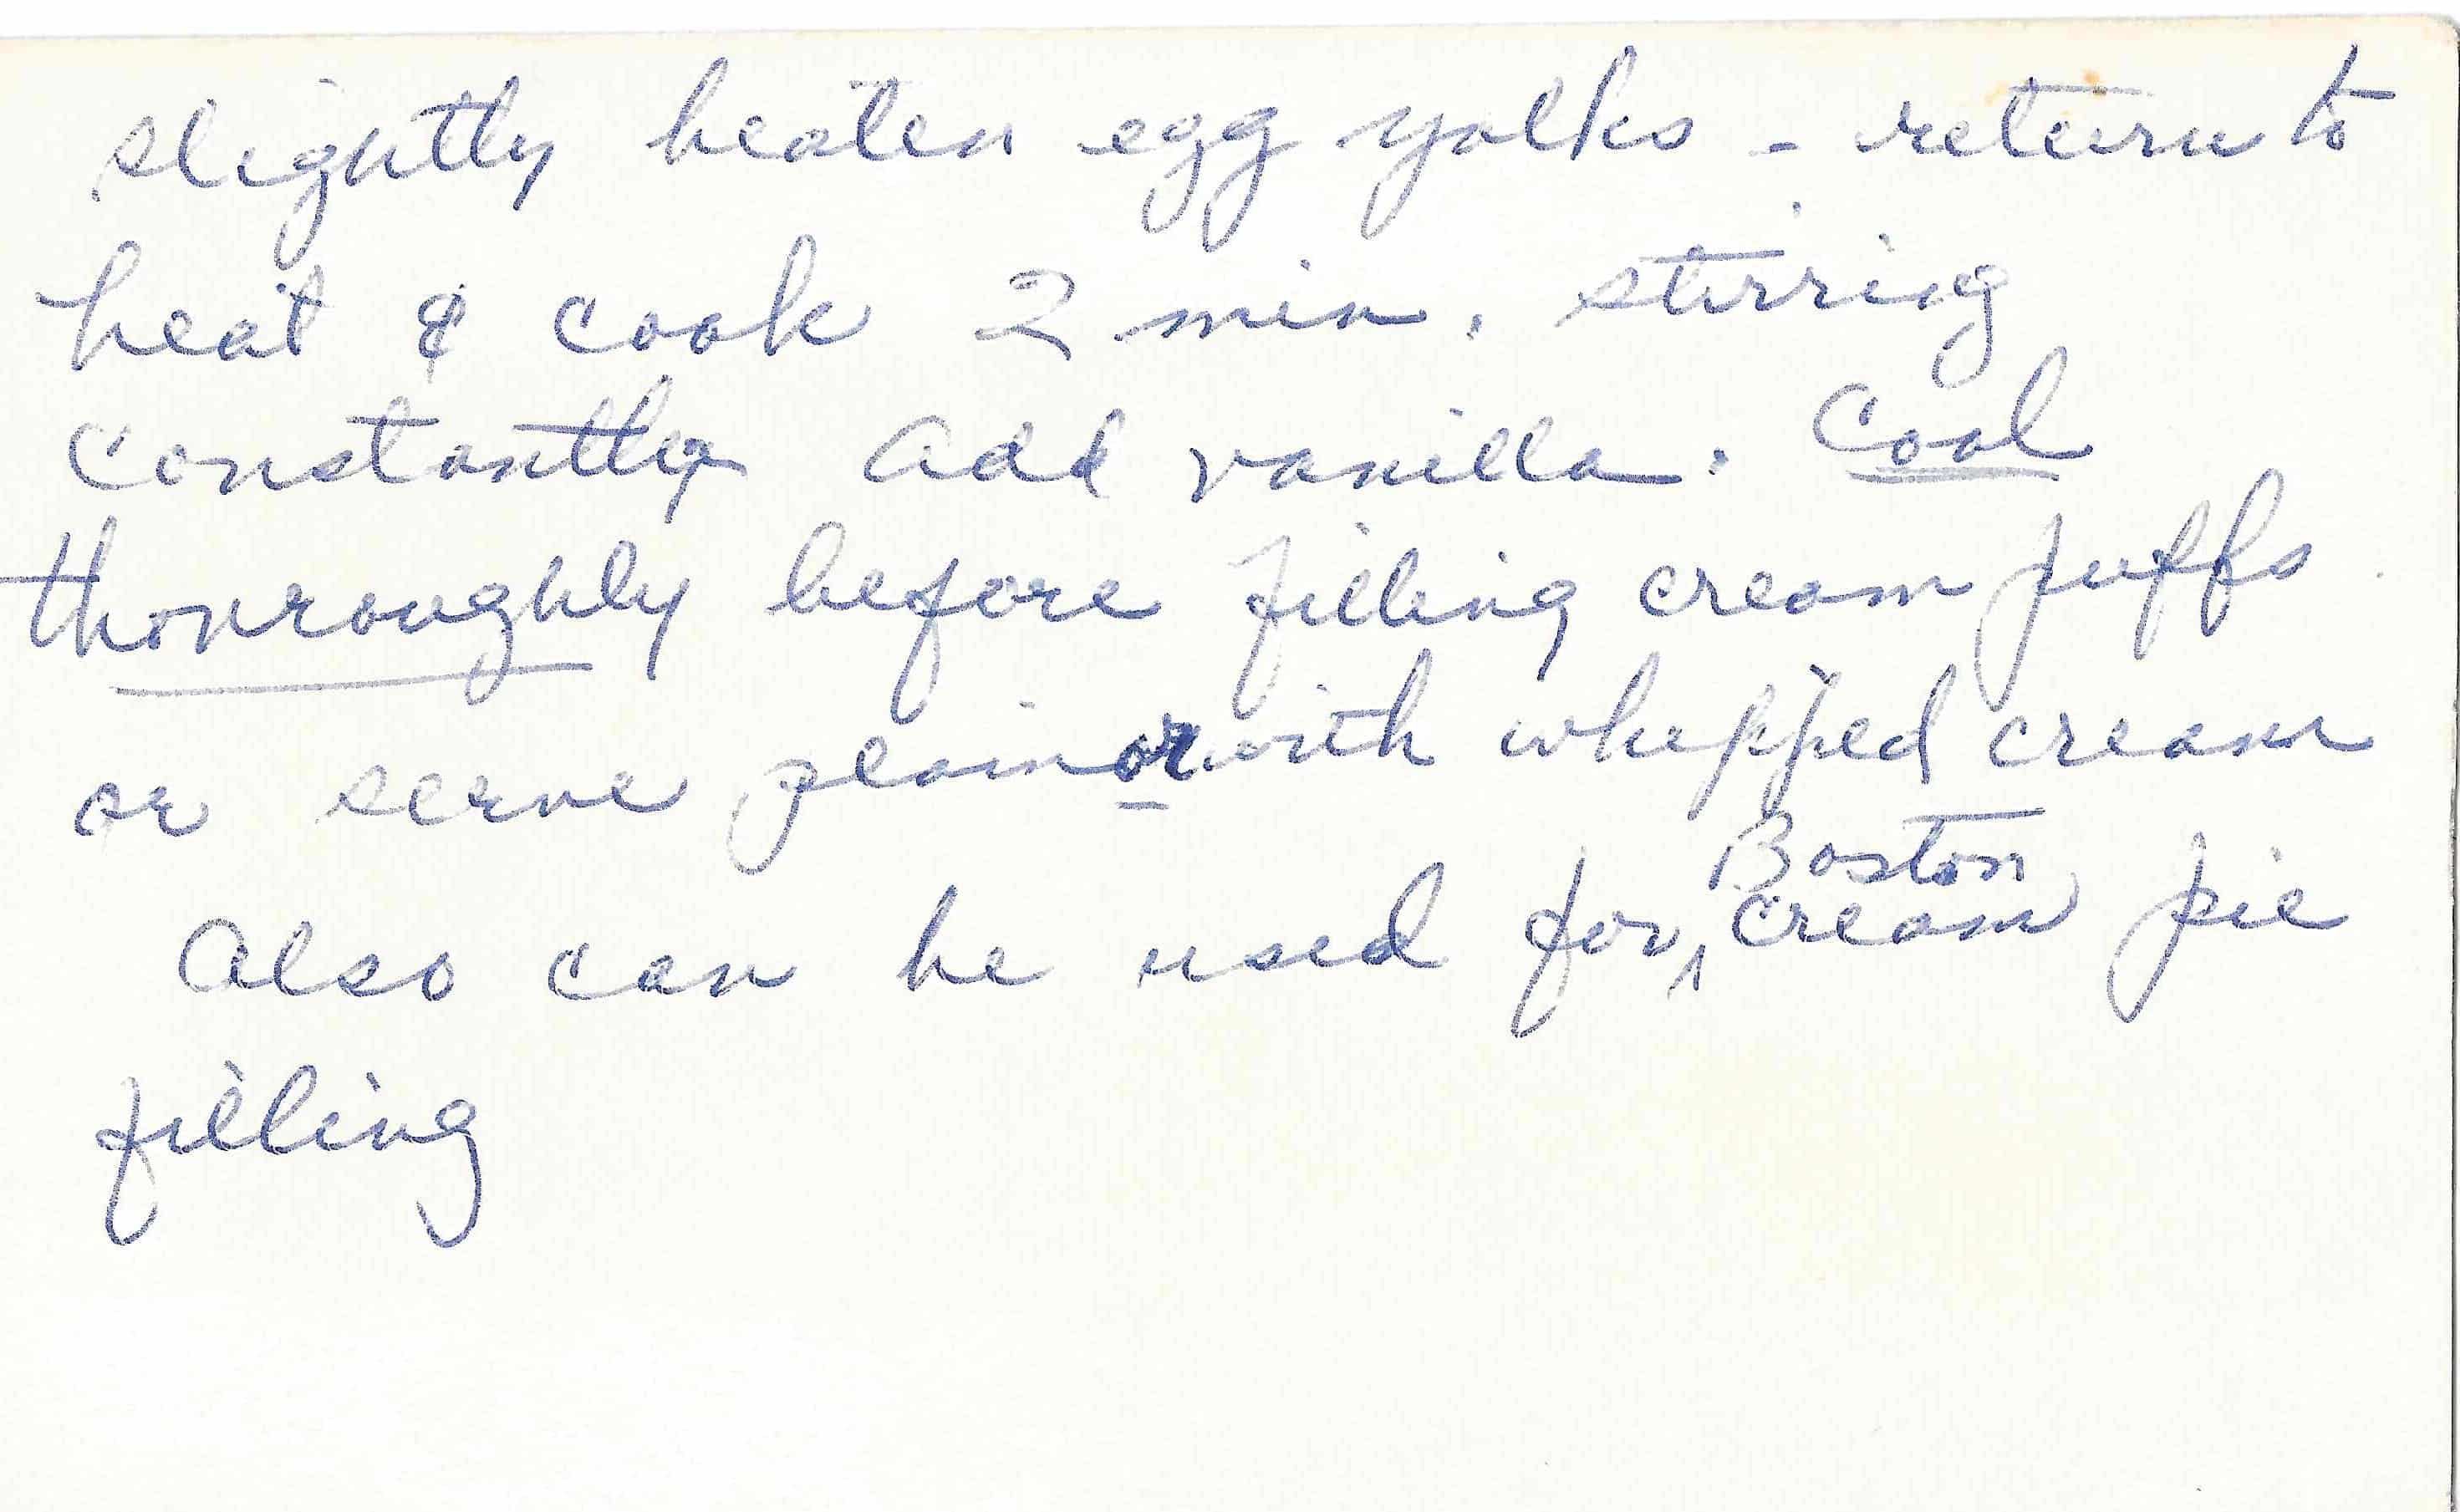 slightly beaten egg yolks - return to
heat & cook 2 min. stirring
constantly add vanilla. Cool
thonroughly before filling cream puffs.
or serve plain or with whipped cream
Boston
Also can be used for ^ cream pie
filling